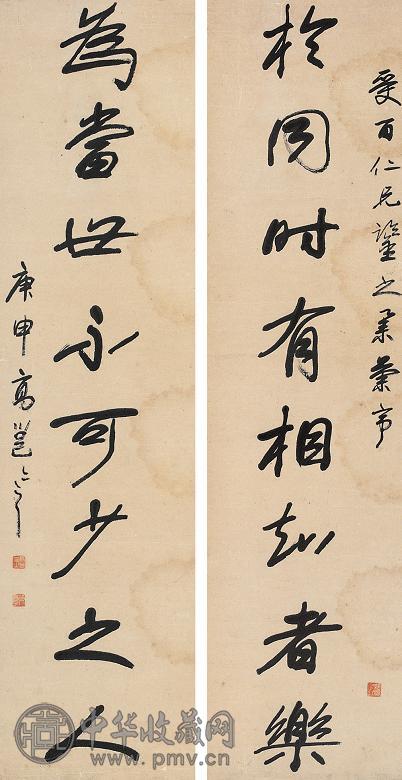 百仁兄鑒之
於同时有相知者樂
為當世不可少之人
庚申高邕
中华收藏网
www.pmv.cn